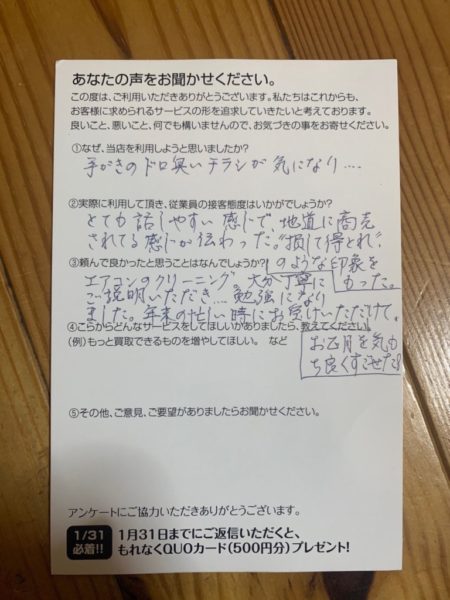 あなたの声をお聞かせください。
この度は、ご利用いただきありがとうございます。私たちはこれからも、
お客様に求められるサービスの形を追求していきたいと考えております。
良いこと、悪いこと、何でも構いませんので、お気づきの事をお寄せください。
①なぜ、当店を利用しようと思いましたか?
手がきのドロ臭いチラシが気になり....
②実際に利用して頂き、従業員の接客態度はいかがでしょうか?
とても話しやすい感じで、地道に商売
されてる感じが伝わった。"損して得とれ"
のような印象を
もった。
③頼んで良かったと思うことはなんでしょうか?
エアコンのクリーニング、大分丁寧に
ご説明いただき...勉強になり
ました。年末の忙しい時にお受けいただけて。
お正月を気も
ち良くすごせた!
④こらからどんなサービスをしてほしいかありましたら、教えてください。
(例)もっと買取できるものを増やしてほしい。 など
⑤その他、ご意見、ご要望がありましたらお聞かせください。
アンケートにご協力いただきありがとうございます。
1/31
必着!!
1月31日までにご返信いただくと、
もれなくQUOカード(500円分)プレゼント!